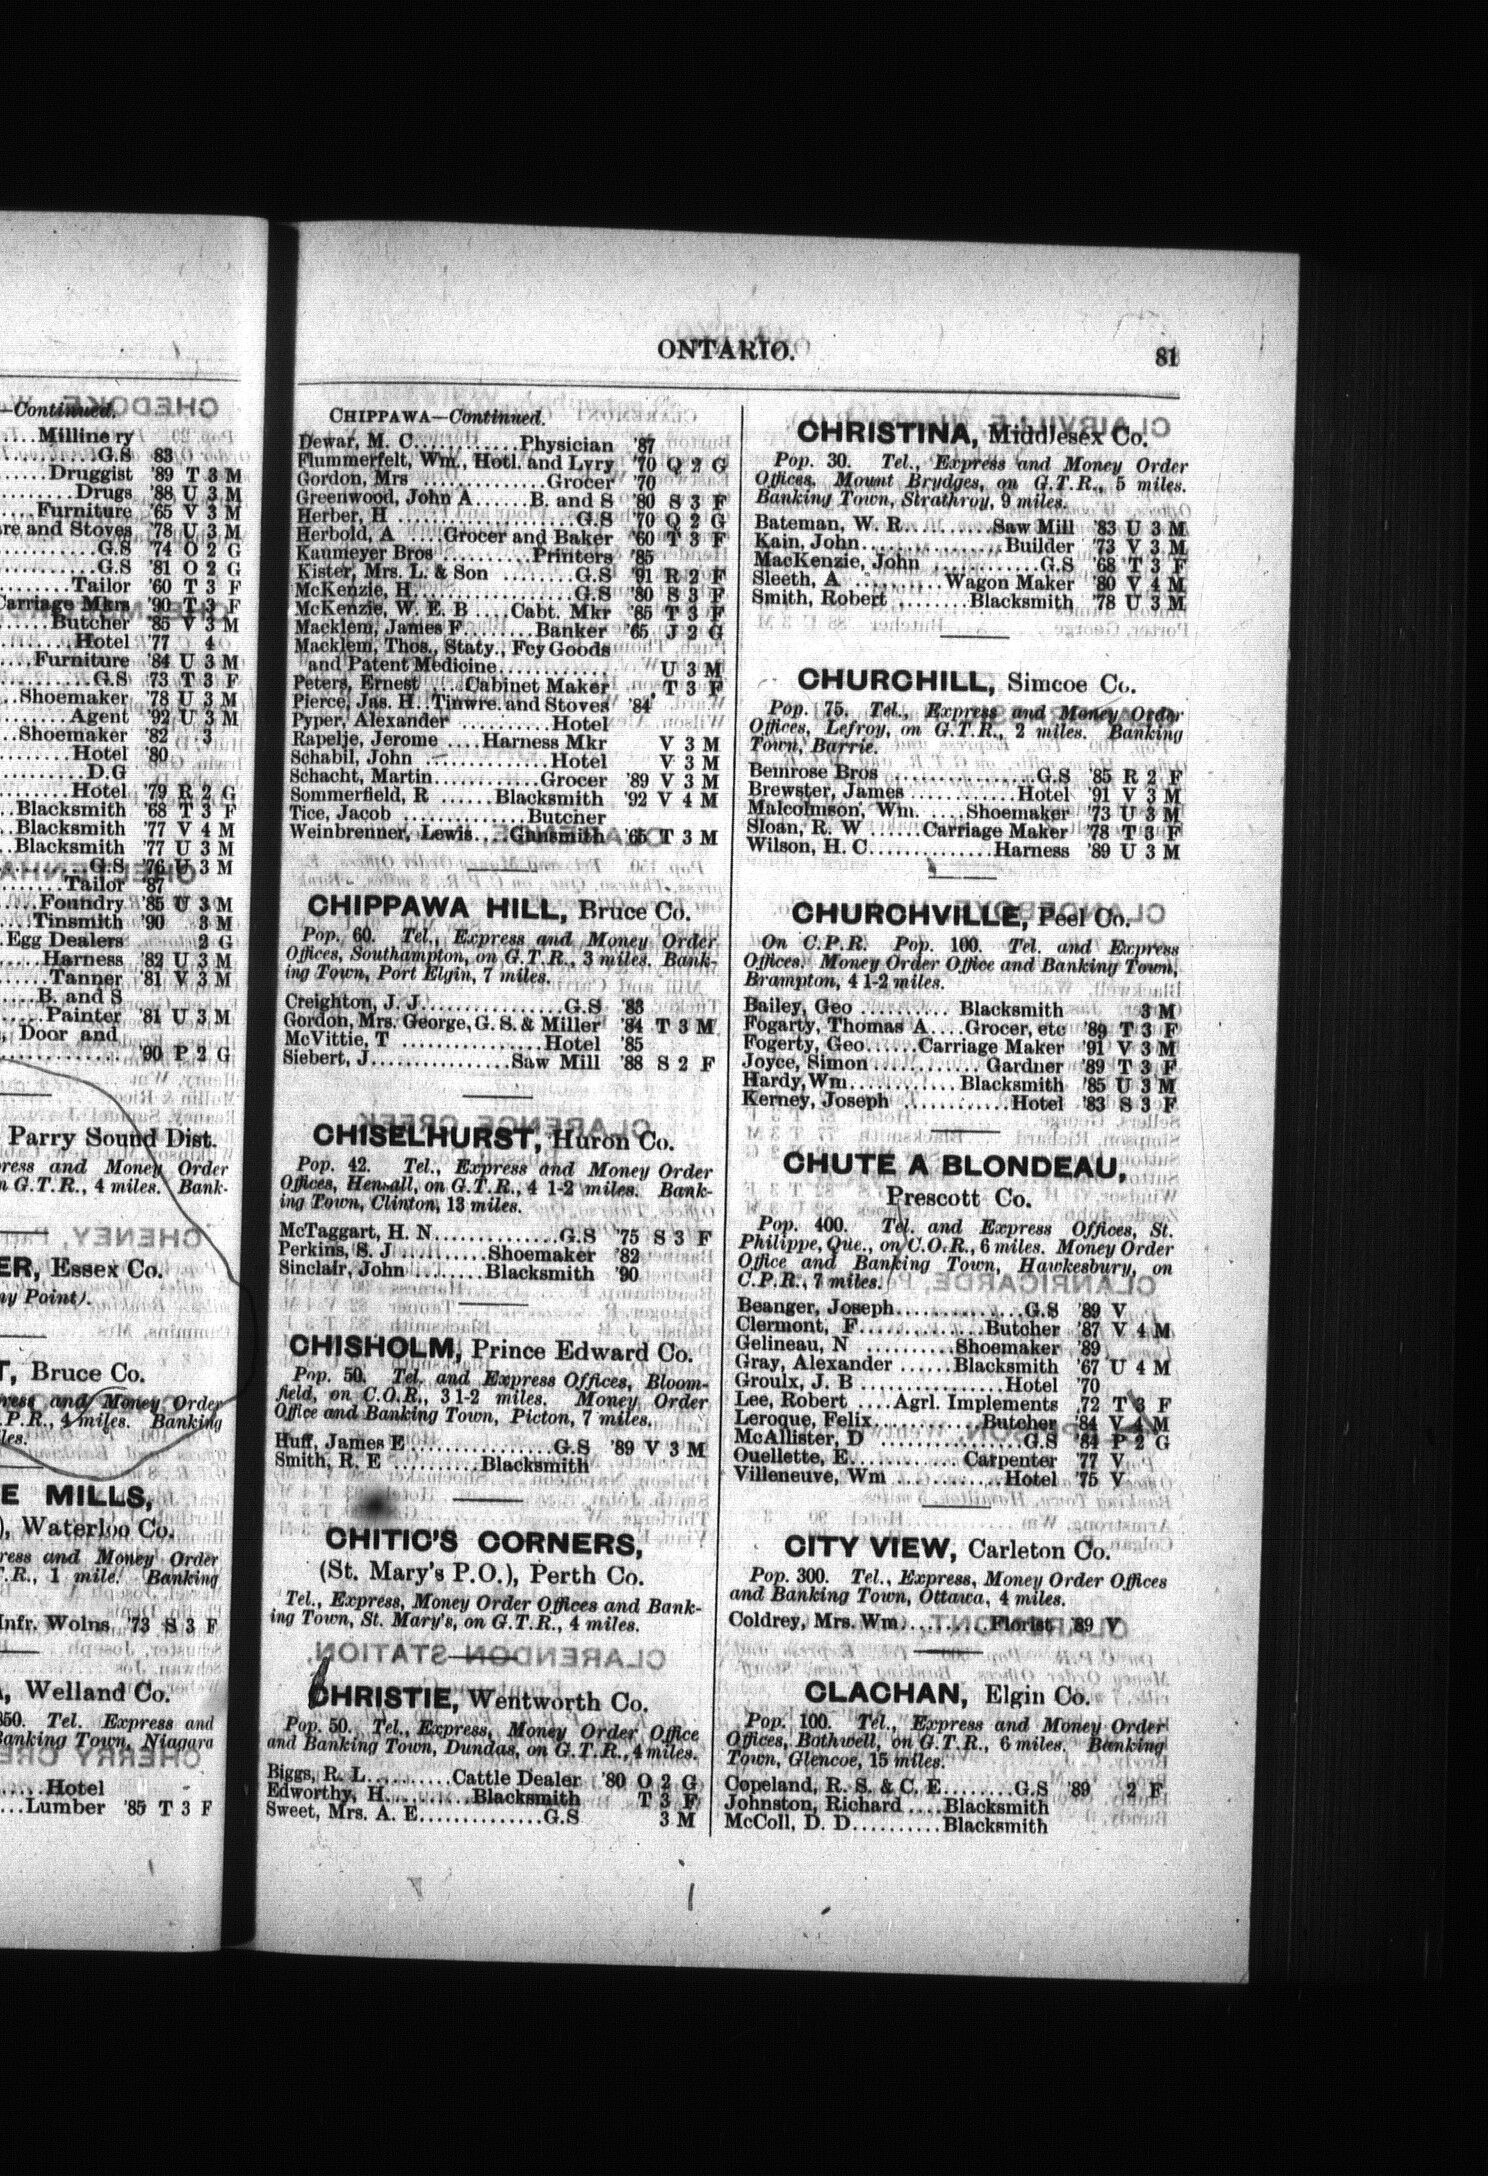 —Continued.
....Millinery
..........G.S 83
.....Druggist '89 T 3 M
.........Drugs '88 U 3 M
....Furniture '65 V 3 M
re and Stoves '78 U 3 M
............G.S '74 O 2 G
............G.S '81 O 2 G
........Tailor '60 T 3 F
Carriage Mkrs '90 T 3 F
......Butcher '85 V 3 M
........Hotel '77 4
....Furniture '84 U 3 M
..........G.S '73 T 3 F
...Shoemaker '78 U 3 M
........Agent '92 U 3 M
...Shoemaker '82 3
........Hotel '80
...........D.G
........Hotel '79 R 2 G
..Blacksmith '68 T 3 F
..Blacksmith '77 V 4 M
..Blacksmith '77 U 3 M
..........G.S '76 U 3 M
.......Tailor '87
.....Foundry '85 U 3 M
....Tinsmith '90 3 M
.Egg Dealers 2 G
.....Harness '82 U 3 M
......Tanner '81 V 3 M
.....B. and S
......Painter '81 U 3 M
, Door and
............ '90 P 2 G
Parry Sound Dist.
ress and Money Order
n G.T.R., 4 miles. Bank-
ER, Essex Co.
ny Point).
T, Bruce Co.
ress and Money Order
.P.R., 4 miles. Banking
les.
E MILLS,
), Waterloo Co.
ress and Money Order
T.R., 1 mile. Banking
Mnfr. Wolns '73 S 3 F
, Welland Co.
350. Tel. Express and
Banking Town, Niagara
....Hotel
...Lumber '85 T 3 F
ONTARIO. 81
CHIPPAWA—Continued.
Dewar, M. C...........Physician '87
Flummerfelt, Wm., Hotl. and Lvry '70 Q 2 G
Gordon, Mrs ..............Grocer '70
Greenwood, John A......B. and S '80 S 3 F
Herber, H ...................G.S '70 Q 2 G
Herbold, A ....Grocer and Baker '60 T 3 F
Kaumeyer Bros ..........Printers '85
Kister, Mrs. L. & Son ........G.S '91 R 2 F
McKenzie, H..................G.S '80 S 3 F
McKenzie, W. E. B ....Cabt. Mkr '85 T 3 F
Macklem, James F........Banker '65 J 2 G
Macklem, Thos., Staty., Fcy Goods
and Patent Medicine............ U 3 M
Peters, Ernest ....Cabinet Maker T 3 F
Pierce, Jas. H..Tinwre. and Stoves '84
Pyper, Alexander ..........Hotel
Rapelje, Jerome ....Harness Mkr V 3 M
Schabil, John .............Hotel V 3 M
Schacht, Martin...........Grocer '89 V 3 M
Sommerfield, R ......Blacksmith '92 V 4 M
Tice, Jacob .............Butcher
Weinbrenner, Lewis....Gunsmith '65 T 3 M
CHIPPAWA HILL, Bruce Co.
Pop. 60. Tel., Express and Money Order
Offices, Southampton, on G.T.R., 3 miles. Bank-
ing Town, Port Elgin, 7 miles.
Creighton, J. J...............G.S '83
Gordon, Mrs. George, G. S. & Miller '84 T 3 M
McVittie, T ................Hotel '85
Siebert, J...............Saw Mill '88 S 2 F
CHISELHURST, Huron Co.
Pop. 42. Tel., Express and Money Order
Offices, Hensall, on G.T.R., 4 1-2 miles. Bank-
ing Town, Clinton, 13 miles.
McTaggart, H. N.............G.S '75 S 3 F
Perkins, S. J ..........Shoemaker '82
Sinclair, John ........Blacksmith '90
CHISHOLM, Prince Edward Co.
Pop. 50. Tel. and Express Offices, Bloom-
field, on C.O.R., 3 1-2 miles. Money Order
Office and Banking Town, Picton, 7 miles.
Huff, James E ...............G.S '89 V 3 M
Smith, R. E ..........Blacksmith
CHITIC'S CORNERS,
(St. Mary's P.O.), Perth Co.
Tel., Express, Money Order Offices and Bank-
ing Town, St. Mary's, on G.T.R., 4 miles.
CHRISTIE, Wentworth Co.
Pop. 50. Tel., Express, Money Order Office
and Banking Town, Dundas, on G.T.R., 4 miles.
Biggs, R. L..........Cattle Dealer '80 O 2 G
Edworthy, H..........Blacksmith T 3 F
Sweet, Mrs. A. E.............G.S 3 M
CHRISTINA, Middlesex Co.
Pop. 30. Tel., Express and Money Order
Offices, Mount Brydges, on G.T.R., 5 miles.
Banking Town, Strathroy, 9 miles.
Bateman, W. R.........Saw Mill '83 U 3 M
Kain, John...............Builder '73 V 3 M
MacKenzie, John ...........G.S '68 T 3 F
Sleeth, A .........Wagon Maker '80 V 4 M
Smith, Robert ........Blacksmith '78 U 3 M
CHURCHILL, Simcoe Co.
Pop. 75. Tel., Express and Money Order
Offices, Lefroy, on G.T.R., 2 miles. Banking
Town, Barrie.
Bemrose Bros ...............G.S '85 R 2 F
Brewster, James ...........Hotel '91 V 3 M
Malcolmson, Wm.....Shoemaker '73 U 3 M
Sloan, R. W ......Carriage Maker '78 T 3 F
Wilson, H. C.............Harness '89 U 3 M
CHURCHVILLE, Peel Co.
On C.P.R. Pop. 100. Tel. and Express
Offices. Money Order Office and Banking Town,
Brampton, 4 1-2 miles.
Bailey, Geo .......... Blacksmith 3 M
Fogarty, Thomas A....Grocer, etc '89 T 3 F
Fogerty, Geo......Carriage Maker '91 V 3 M
Joyce, Simon ........... Gardner '89 T 3 F
Hardy, Wm........... Blacksmith '85 U 3 M
Kerney, Joseph ...........Hotel '83 S 3 F
CHUTE A BLONDEAU,
Prescott Co.
Pop. 400. Tel. and Express Offices, St.
Philippe, Que., on C.O.R., 6 miles. Money Order
Office and Banking Town, Hawkesbury, on
C.P.R., 7 miles.
Beanger, Joseph..............G.S '89 V
Clermont, F.............Butcher '87 V 4 M
Gelineau, N ..........Shoemaker '89
Gray, Alexander ......Blacksmith '67 U 4 M
Groulx, J. B ...............Hotel '70
Lee, Robert ....Agrl. Implements '72 T 3 F
Leroque, Felix...........Butcher '84 V 4 M
McAllister, D ...............G.S '84 P 2 G
Ouellette, E............Carpenter '77 V
Villeneuve, Wm ............Hotel '75 V
CITY VIEW, Carleton Co.
Pop. 300. Tel., Express, Money Order Offices
and Banking Town, Ottawa, 4 miles.
Coldrey, Mrs. Wm.........Florist '89 V
CLACHAN, Elgin Co.
Pop. 100. Tel., Express and Money Order
Offices, Bothwell, on G.T.R., 6 miles. Banking
Town, Glencoe, 15 miles.
Copeland, R. S. & C. E........G.S '89 2 F
Johnston, Richard ....Blacksmith
McColl, D. D..........Blacksmith